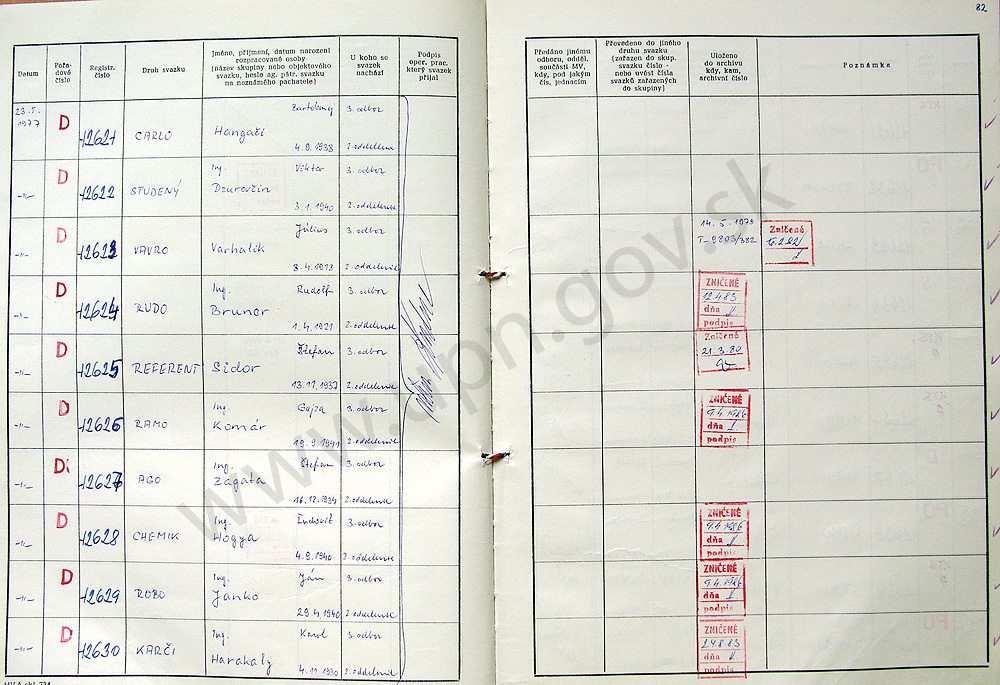 82
Datum
Pořa-
dové
číslo
Registr.
číslo
Druh svazku
Jméno, příjmení, datum narození
rozpracované osoby
(název skupiny nebo objektového
svazku, heslo ag. pátr. svazku
na neznámého pachatele)
U koho se
svazek
nachází
Podpis
oper. prac.
který svazek
přijal
Předáno jinému
odboru, odděl.
součásti MV,
kdy, pod jakým
čís. jednacím
Převedeno do jiného
druhu svazku
(zařazen do skup.
svazku číslo -
nebo uvést čísla
svazků zařazených
do skupiny)
Uloženo
do archivu
kdy, kam,
archivní číslo
Poznámka
23.5.
1977
D
12621
CARLO
Hangači
4.9.1938
3. odbor
2. oddelenie
-"-
D
12622
STUDENÝ
Ing. Viktor
Dzurovčin
3.1.1940
3. odbor
2. oddelenie
-"-
D
12623
VAVRO
Július
Varhalik
3.4.1913
3. odbor
2. oddelenie
14.5.1979
T-9803/382
Zničené
-"-
D
12624
RUDO
Ing. Rudolf
Bruner
1.4.1921
3. odbor
2. oddelenie
ZNIČENÉ
12.4.83
dňa
podpis
-"-
D
12625
REFERENT
Štefan
Sidor
13.11.1937
3. odbor
2. oddelenie
Zničené
21.3.80
-"-
D
12626
RAMO
Ing. Gejza
Komár
19.9.1941
3. odbor
2. oddelenie
ZNIČENÉ
9.4.1986
dňa
podpis
-"-
Di
12627
AGO
Ing. Štefan
Zagata
16.12.1934
3. odbor
2. oddelenie
-"-
D
12628
CHEMIK
Ing. Ľudovít
Hogya
4.9.1940
3. odbor
2. oddelenie
ZNIČENÉ
9.4.1986
dňa
podpis
-"-
D
12629
ROBO
Ing. Ján
Janko
29.4.1940
3. odbor
2. oddelenie
ZNIČENÉ
9.4.1986
dňa
podpis
-"-
D
12630
KARČI
Ing. Karol
Harakaly
4.11.1930
3. odbor
2. oddelenie
ZNIČENÉ
24.8.83
dňa
podpis
www.upn.gov.sk